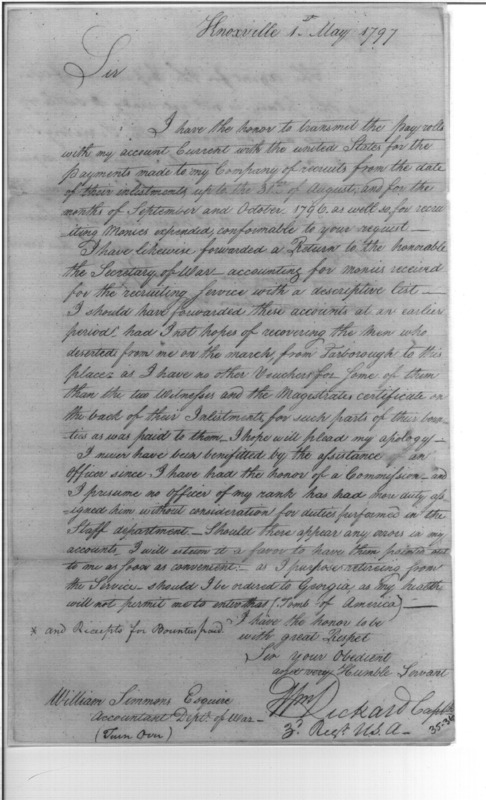 Knoxville 1st May 1797
Sir
I have the honor to transmit the pay rolls
with my account Current with the united States for the
payments made to my Company of recruits from the date
of their inlistments up to the 31st of August, and for the
months of September and October 1796. as well as for recru
iting Monies expended, conformable to your request —
I have likewise forwarded a Return to the honorable
the Secretary of War accounting for monies received
for the recruiting Service with a descriptive list —
I should have forwarded these accounts at an earlier
period had I not hopes of recovering the Men who
deserted from me on the march from Tarborough to this
place as I have no other Vouchers for Some of them
than the two Witnesses and the Magistrates certificate on
the back of their Inlistments for such parts of their boun
ties as was paid to them. I hope will plead my apology —
I never have been benefitted by the assistance of an
Officer since I have had the honor of a Commission — and
I presume no officer of my rank has had more duty as
signed him without consideration for duties performed in the
Staff department — Should there appear any errors in my
accounts, I will esteem it a favor to have them pointed out
to me as soon as convenient — as I purpose retireing from
the Service should I be ordered to Georgia as my health
will not permit me to enter that (Tomb of America) —
I have the honor to be
x and Receipts for Bounties paid
with great Respet
Sir your Obedient
and very Humble Servant
Wm Rickard Captn
3d Regt U.S.A —
William Simmons Esquire
Accountant Dept. of War —
(Turn Over)